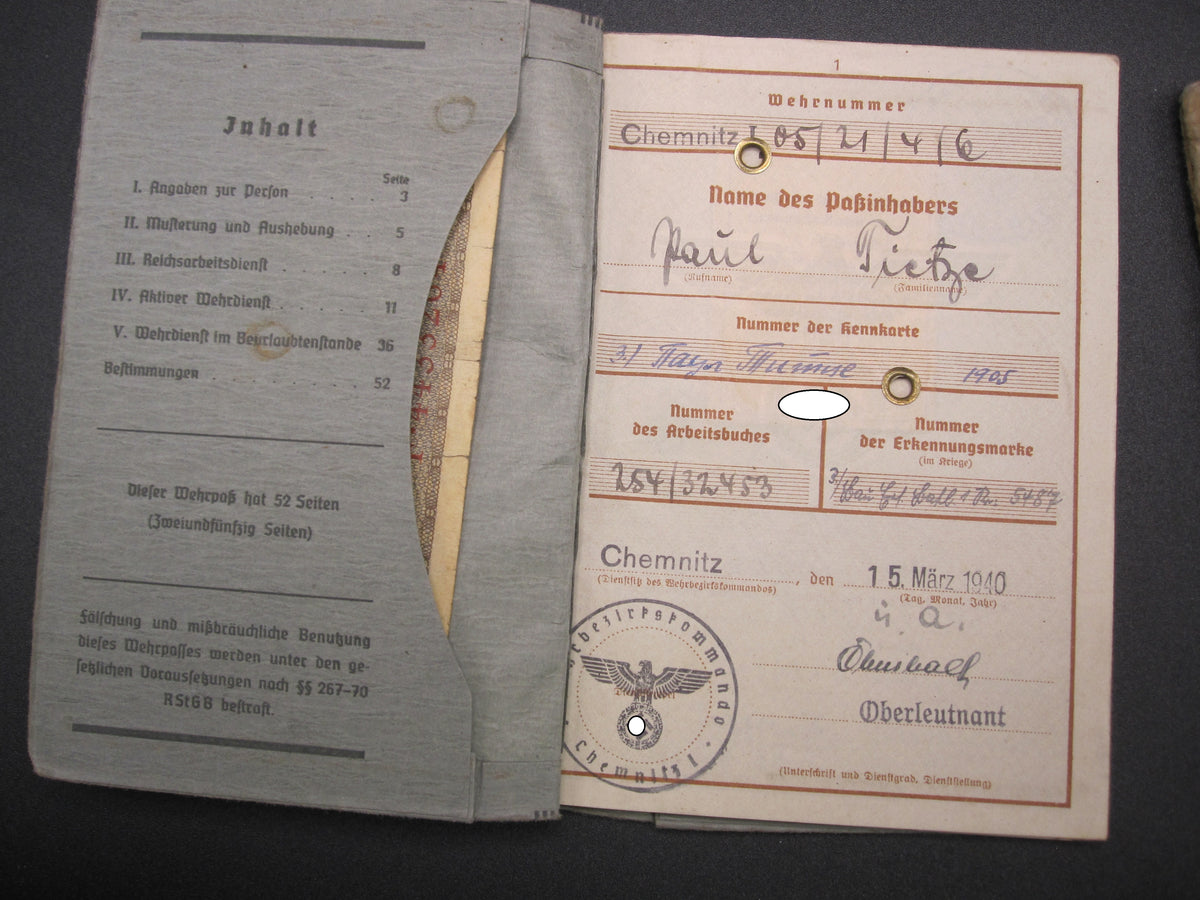 Inhalt
Seite
I. Angaben zur Person . . . . . 3
II. Musterung und Aushebung . . 5
III. Reichsarbeitsdienst . . . . . 8
IV. Aktiver Wehrdienst . . . . . 11
V. Wehrdienst im Beurlaubtenstande 36
Bestimmungen . . . . . . . . 52
Dieser Wehrpaß hat 52 Seiten
(Zweiundfünfzig Seiten)
Fälschung und mißbräuchliche Benutzung
dieses Wehrpasses werden unter den ge-
setzlichen Voraussetzungen nach §§ 267-70
RStGB bestraft.
1
Wehrnummer
Chemnitz I 05/21/4/6
Name des Paßinhabers
Paul Tietze
(Rufname) (Familienname)
Nummer der Kennkarte
1905
Nummer
des Arbeitsbuches
254/32453
Nummer
der Erkennungsmarke
(im Kriege)
5487
Chemnitz, den 15. März 1940
(Dienstsitz des Wehrbezirkskommandos) (Tag, Monat, Jahr)
Wehrbezirkskommando
Chemnitz I
Oberleutnant
(Unterschrift und Dienstgrad, Dienststellung)